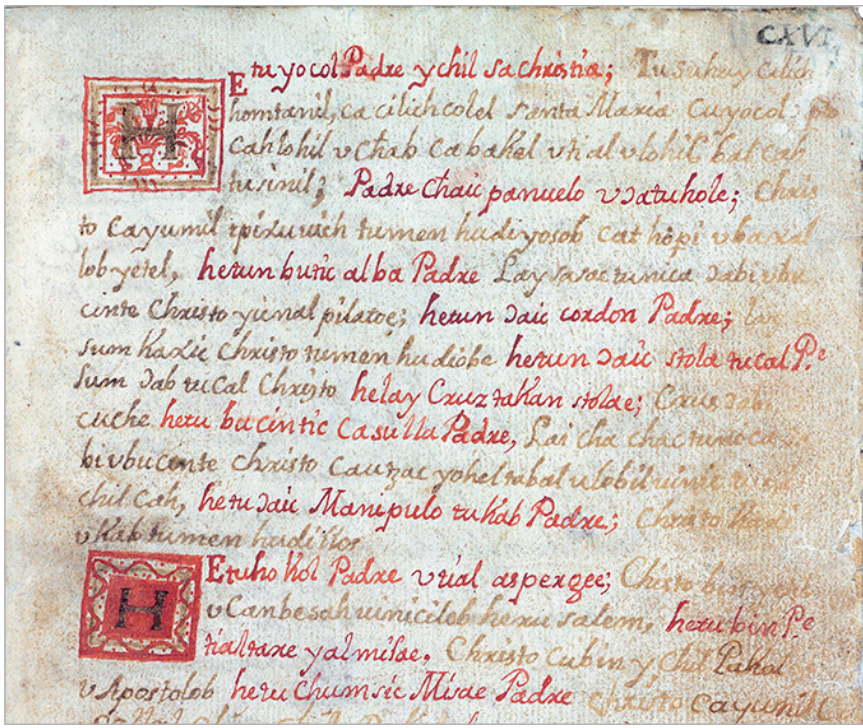 CXVI
HEtuyocol Padre ychil sachristia; Tusuhuy cilich
homtanil, ca cilich colel Santa Maria Cuyocol
cahlohil uchab cabakel utial ulohil, bal cah
tusinil; Padre chaic panuelo uɔatuhole; Chris
to cayumil tpixuuich tumen hudiyosob cat hopi ubaxal
lob yetel, hetun butic alba Padre Lay sasac tunica ɔabi ubu
cinte Christo yicnal pilatoe; hetun ɔaic cordon Padre; lay
sum kaxic Christo tumen hudiobe hetun ɔaic stola tucal Pe
sum ɔab tucal Christo helay Cruz takan stolae; Crus ɔabi
cuche hetu bucintic Casulla Padre, Lai cha chac tunica
bi ubucinte christo cautzac yoheltabal ulobil uinic
chil cah, hetu ɔaic Manipulo tukab Padre; Christo kaxi
ukab tumen hudiyos
HEtuhokol Padre utial aspergee; Christo
uCanbesah uinicilob Jerusalem, hetu bin Pe
tialtare yalmisae. Christo cubin ychil Pakal
uApostolob hetu chumsic Misae Padre Christo cayumil